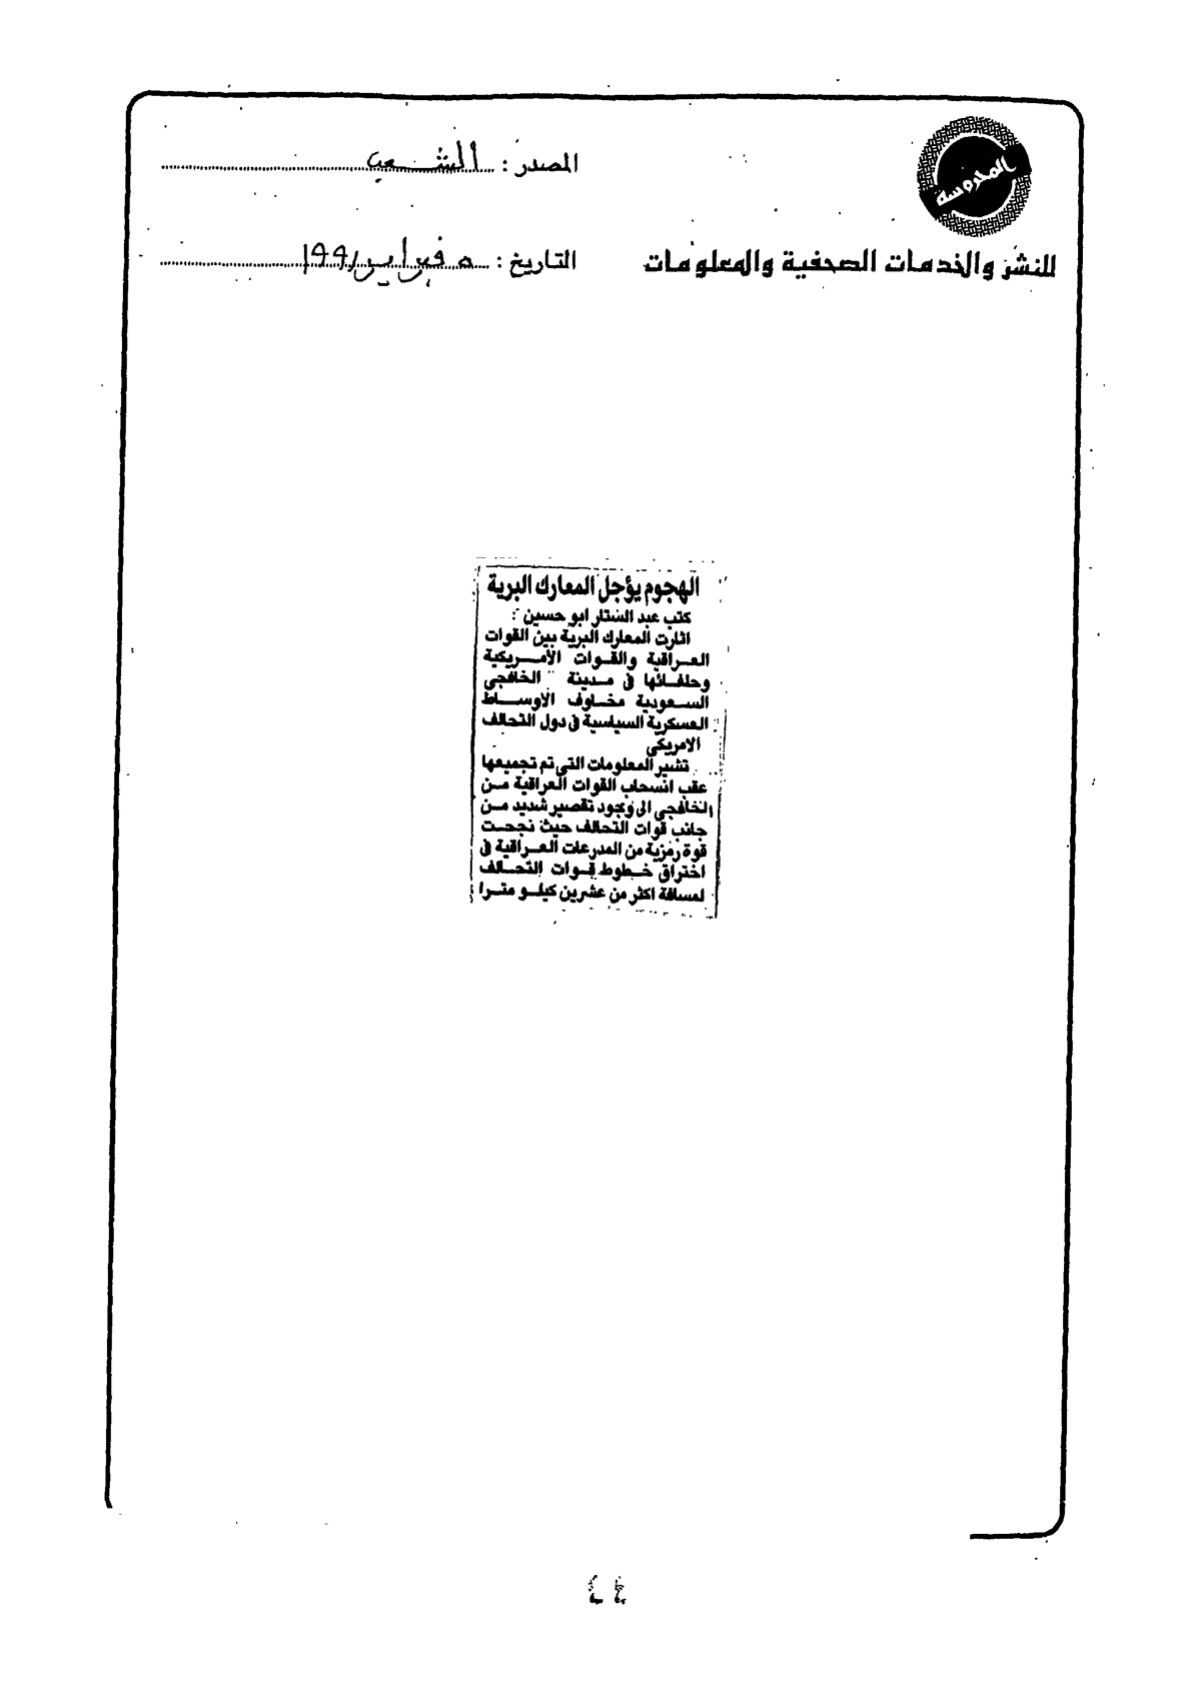 المحروسة
المصدر : الشعب
للنشر والخدمات الصحفية والمعلومات
التاريخ : ٥ فبراير ١٩٩١
الهجوم يؤجل المعارك البرية
كتب عبد الستار ابو حسين :
اثارت المعارك البرية بين القوات
العراقية والقوات الأمريكية
وحلفائها في مدينة الخافجي
السعودية مخاوف الاوساط
العسكرية السياسية في دول التحالف
الامريكي
تشير المعلومات التي تم تجميعها
عقب انسحاب القوات العراقية من
الخافجي الى وجود تقصير شديد من
جانب قوات التحالف حيث نجحت
قوة رمزية من المدرعات العراقية في
اختراق خطوط قوات التحالف
لمسافة اكثر من عشرين كيلو مترا